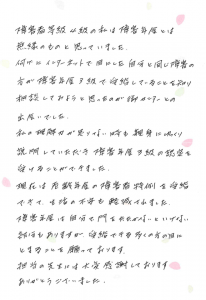 障害者等級4級の私は障害年金とは
無縁のものと思っていました。
何げにインターネットで目にした自分と同じ障害の
方が障害年金3級で受給していることを知り
相談してみようと思ったのが御センターとの
出逢いでした。
私の理解力が足りない時も親身にゆっくり
説明していただき障害年金3級の認定を
受けることができました。
現在は老齢年金の障害者特例を受給
できて、生活の不安も軽減できました。
障害年金は自分で門をたたかないといけない
訳もありますが受給できる多くの方の目に
とまることを願っております。
担当の先生には大変感謝しております
ありがとうございました。